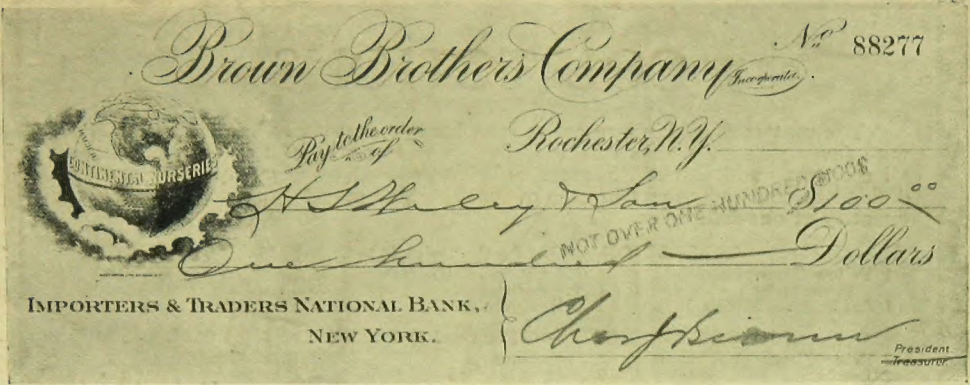 Brown Brothers Company Incorporated.
No 88277
CONTINENTAL NURSERIES
Pay to the order of
Rochester, N.Y.
H S Wiley & Son $100.00
NOT OVER ONE HUNDRED $100$
One hundred Dollars
IMPORTERS & TRADERS NATIONAL BANK,
NEW YORK.
Chas J Brown
President
Treasurer.